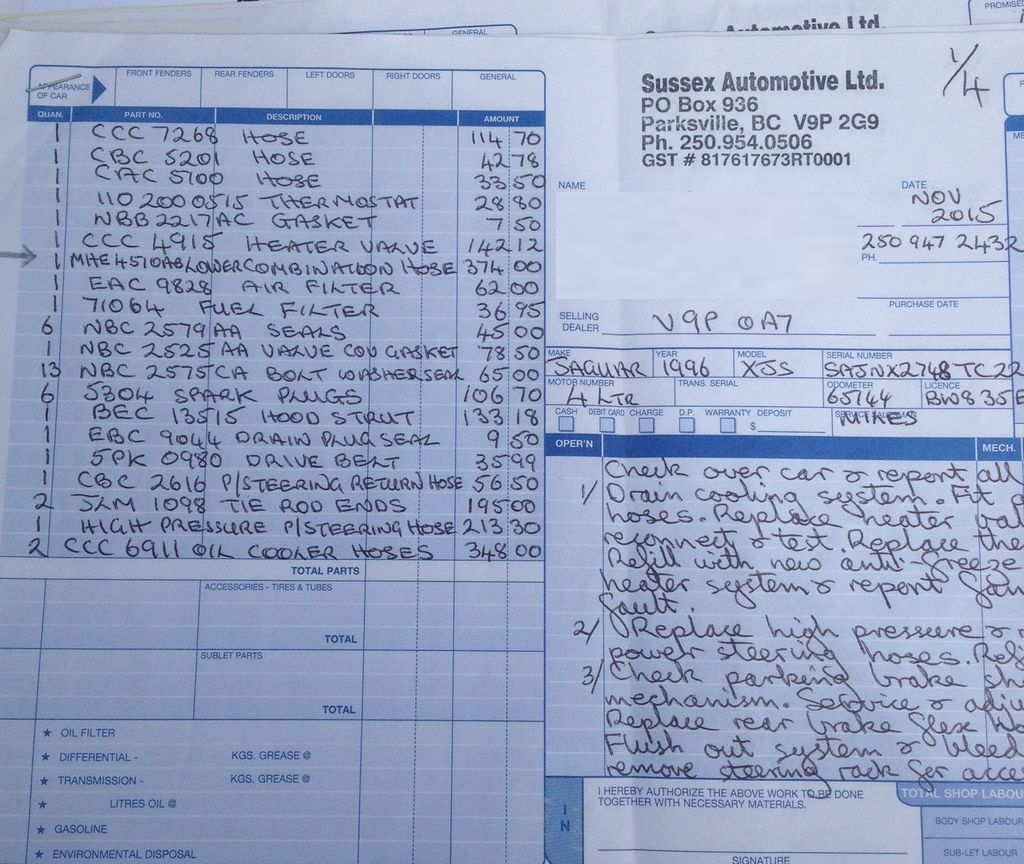 GENERAL
Sussex Automotive Ltd.
PROMISED
APPEARANCE OF CAR
FRONT FENDERS
REAR FENDERS
LEFT DOORS
RIGHT DOORS
GENERAL
QUAN. PART NO. DESCRIPTION AMOUNT
1 CCC 7268 HOSE 114 70
1 CBC 5201 HOSE 42 78
1 CAC 5700 HOSE 33 50
1 110 2000515 THERMOSTAT 28 80
1 NBB 2217AC GASKET 7 50
1 CCC 4915 HEATER VALVE 142 12
1 MHE4510AB LOWER COMBINATION HOSE 374 00
1 EAC 9828 AIR FILTER 62 00
1 71064 FUEL FILTER 36 95
6 NBC 2579AA SEALS 45 00
1 NBC 2525AA VALVE COV GASKET 78 50
13 NBC 2575CA BOLT WASHER SEAL 65 00
6 5304 SPARK PLUGS 106 70
1 BEC 13515 HOOD STRUT 133 18
1 EBC 9044 DRAIN PLUG SEAL 9 50
1 5PK 0980 DRIVE BELT 35 99
1 CBC 2616 P/STEERING RETURN HOSE 56 50
2 JLM 1098 TIE ROD ENDS 195 00
1 HIGH PRESSURE P/STEERING HOSE 213 30
2 CCC 6911 OIL COOLER HOSES 348 00
TOTAL PARTS
ACCESSORIES - TIRES & TUBES
TOTAL
SUBLET PARTS
TOTAL
★ OIL FILTER
★ DIFFERENTIAL - KGS. GREASE @
★ TRANSMISSION - KGS. GREASE @
★ LITRES OIL @
★ GASOLINE
★ ENVIRONMENTAL DISPOSAL
Sussex Automotive Ltd.
PO Box 936
Parksville, BC V9P 2G9
Ph. 250.954.0506
GST # 817617673RT0001
1/4
NAME
DATE
NOV 2015
250 947 2432
PH.
PURCHASE DATE
SELLING DEALER V9P 0A7
MAKE YEAR MODEL SERIAL NUMBER
JAGUAR 1996 XJS SAJNX2748TC22
MOTOR NUMBER TRANS. SERIAL ODOMETER LICENCE
4 LTR 65744 BW8 35E
CASH DEBIT CARD CHARGE D.P. WARRANTY DEPOSIT $
MIKES
OPER'N MECH.
Check over car & report all
1/ Drain cooling system. Fit
hoses. Replace heater val
reconnect & test. Replace the
Refill with new anti-freeze
heater system & report fan
fault.
2/ Replace high pressure &
power steering hoses. Refi
3/ Check parking brake sh
mechanism. Service & adju
Replace rear brake flex ho
Flush out system & bleed
remove steering rack for acce
IN
I HEREBY AUTHORIZE THE ABOVE WORK TO BE DONE
TOGETHER WITH NECESSARY MATERIALS.
SIGNATURE
TOTAL SHOP LABOU
BODY SHOP LABOUR
SUB-LET LABOUR